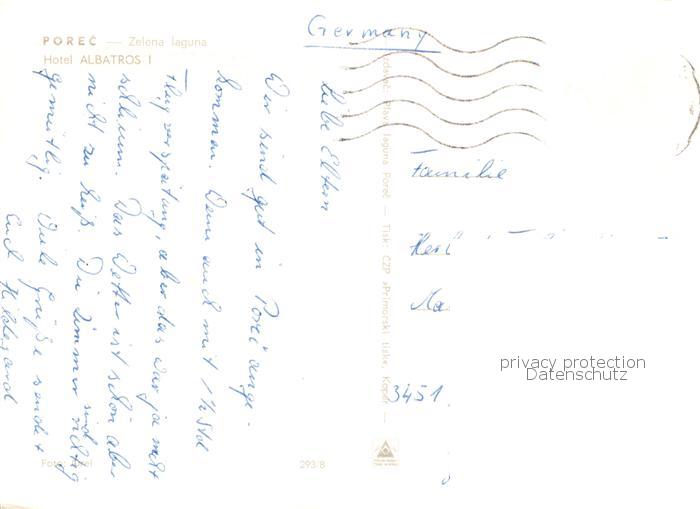 POREČ — Zelena laguna
Hotel ALBATROS I
Liebe Eltern
Wir sind gut in Poreč ange-
kommen. Wenn auch mit 1½ Std
Flugverspätung, aber das war ja nicht
schlimm. Das Wetter ist schön aber
nicht zu heiß. Die Zimmer sind richtig
gemütlig. Viele Grüße sendet
Euch Hildegard
Foto:
293/8
laguna Poreč — Tisk: ČZP »Primorski tisk«, Koper —
Germany
Familie
3451
privacy protection
Datenschutz